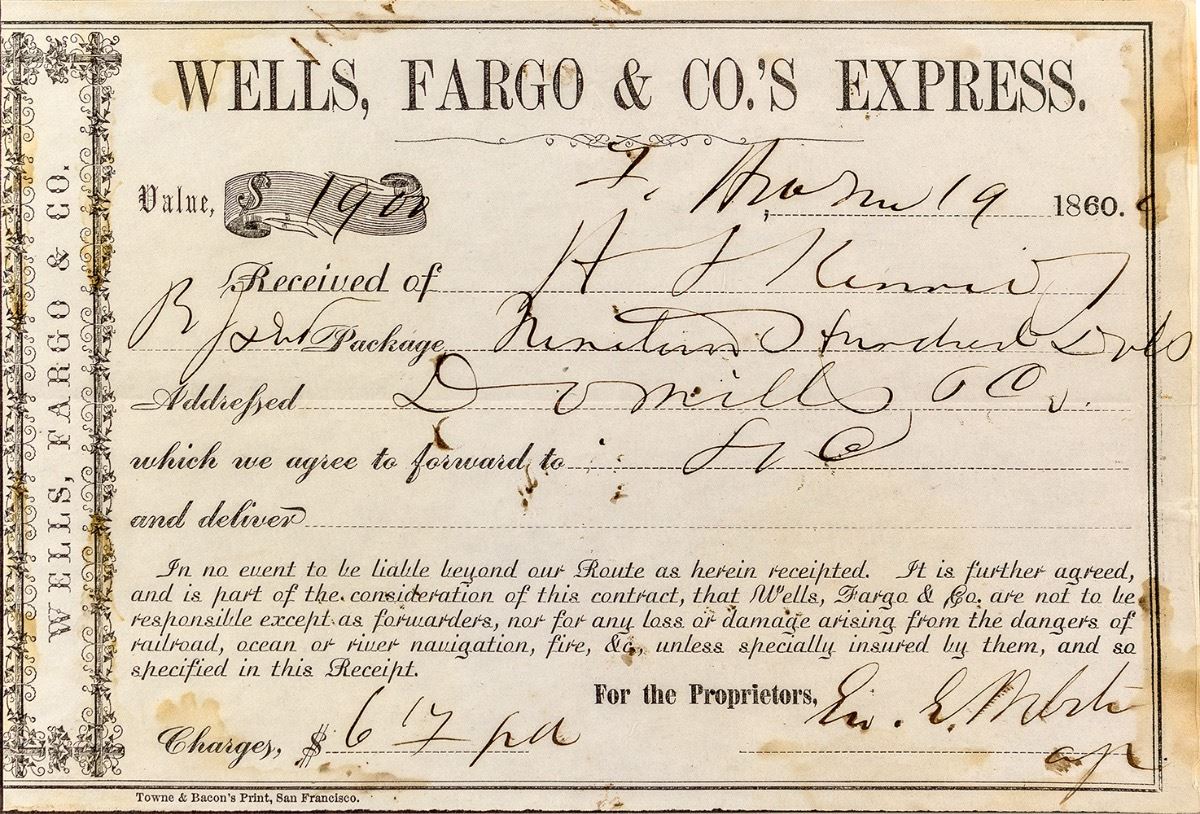 WELLS, FARGO & CO.
WELLS, FARGO & CO.'S EXPRESS.
Value, $ 1900
19 1860.
Received of H
Package Nineteen Hundred Dols
Addressed D O Mills & Co.
which we agree to forward to
and deliver
In no event to be liable beyond our Route as herein receipted. It is further agreed,
and is part of the consideration of this contract, that Wells, Fargo & Co. are not to be
responsible except as forwarders, nor for any loss or damage arising from the dangers of
railroad, ocean or river navigation, fire, &c., unless specially insured by them, and so
specified in this Receipt.
For the Proprietors,
Charges, $ 6 pd
Towne & Bacon's Print, San Francisco.